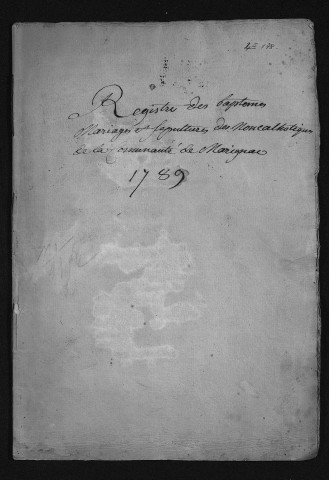 4E 175
Registre des baptemes
Mariages et sepultures des Noncatholiques
de la Comunauté de Marignac
1789